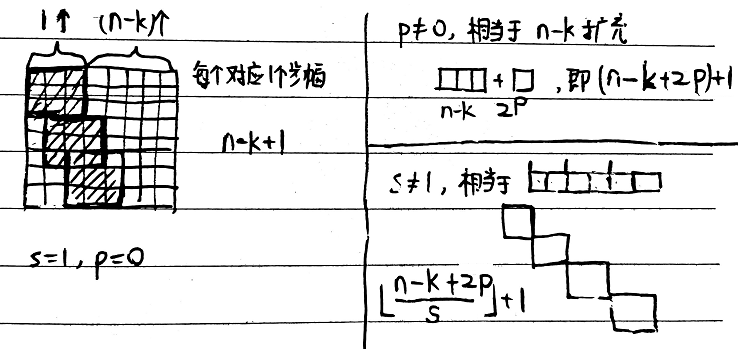 1个 (n-k)个
每个对应1个步幅
n-k+1
s=1, p=0
p≠0, 相当于 n-k 扩充
+ , 即 (n-k+2p)+1
n-k 2p
s≠1, 相当于
⌊(n-k+2p)/s⌋+1